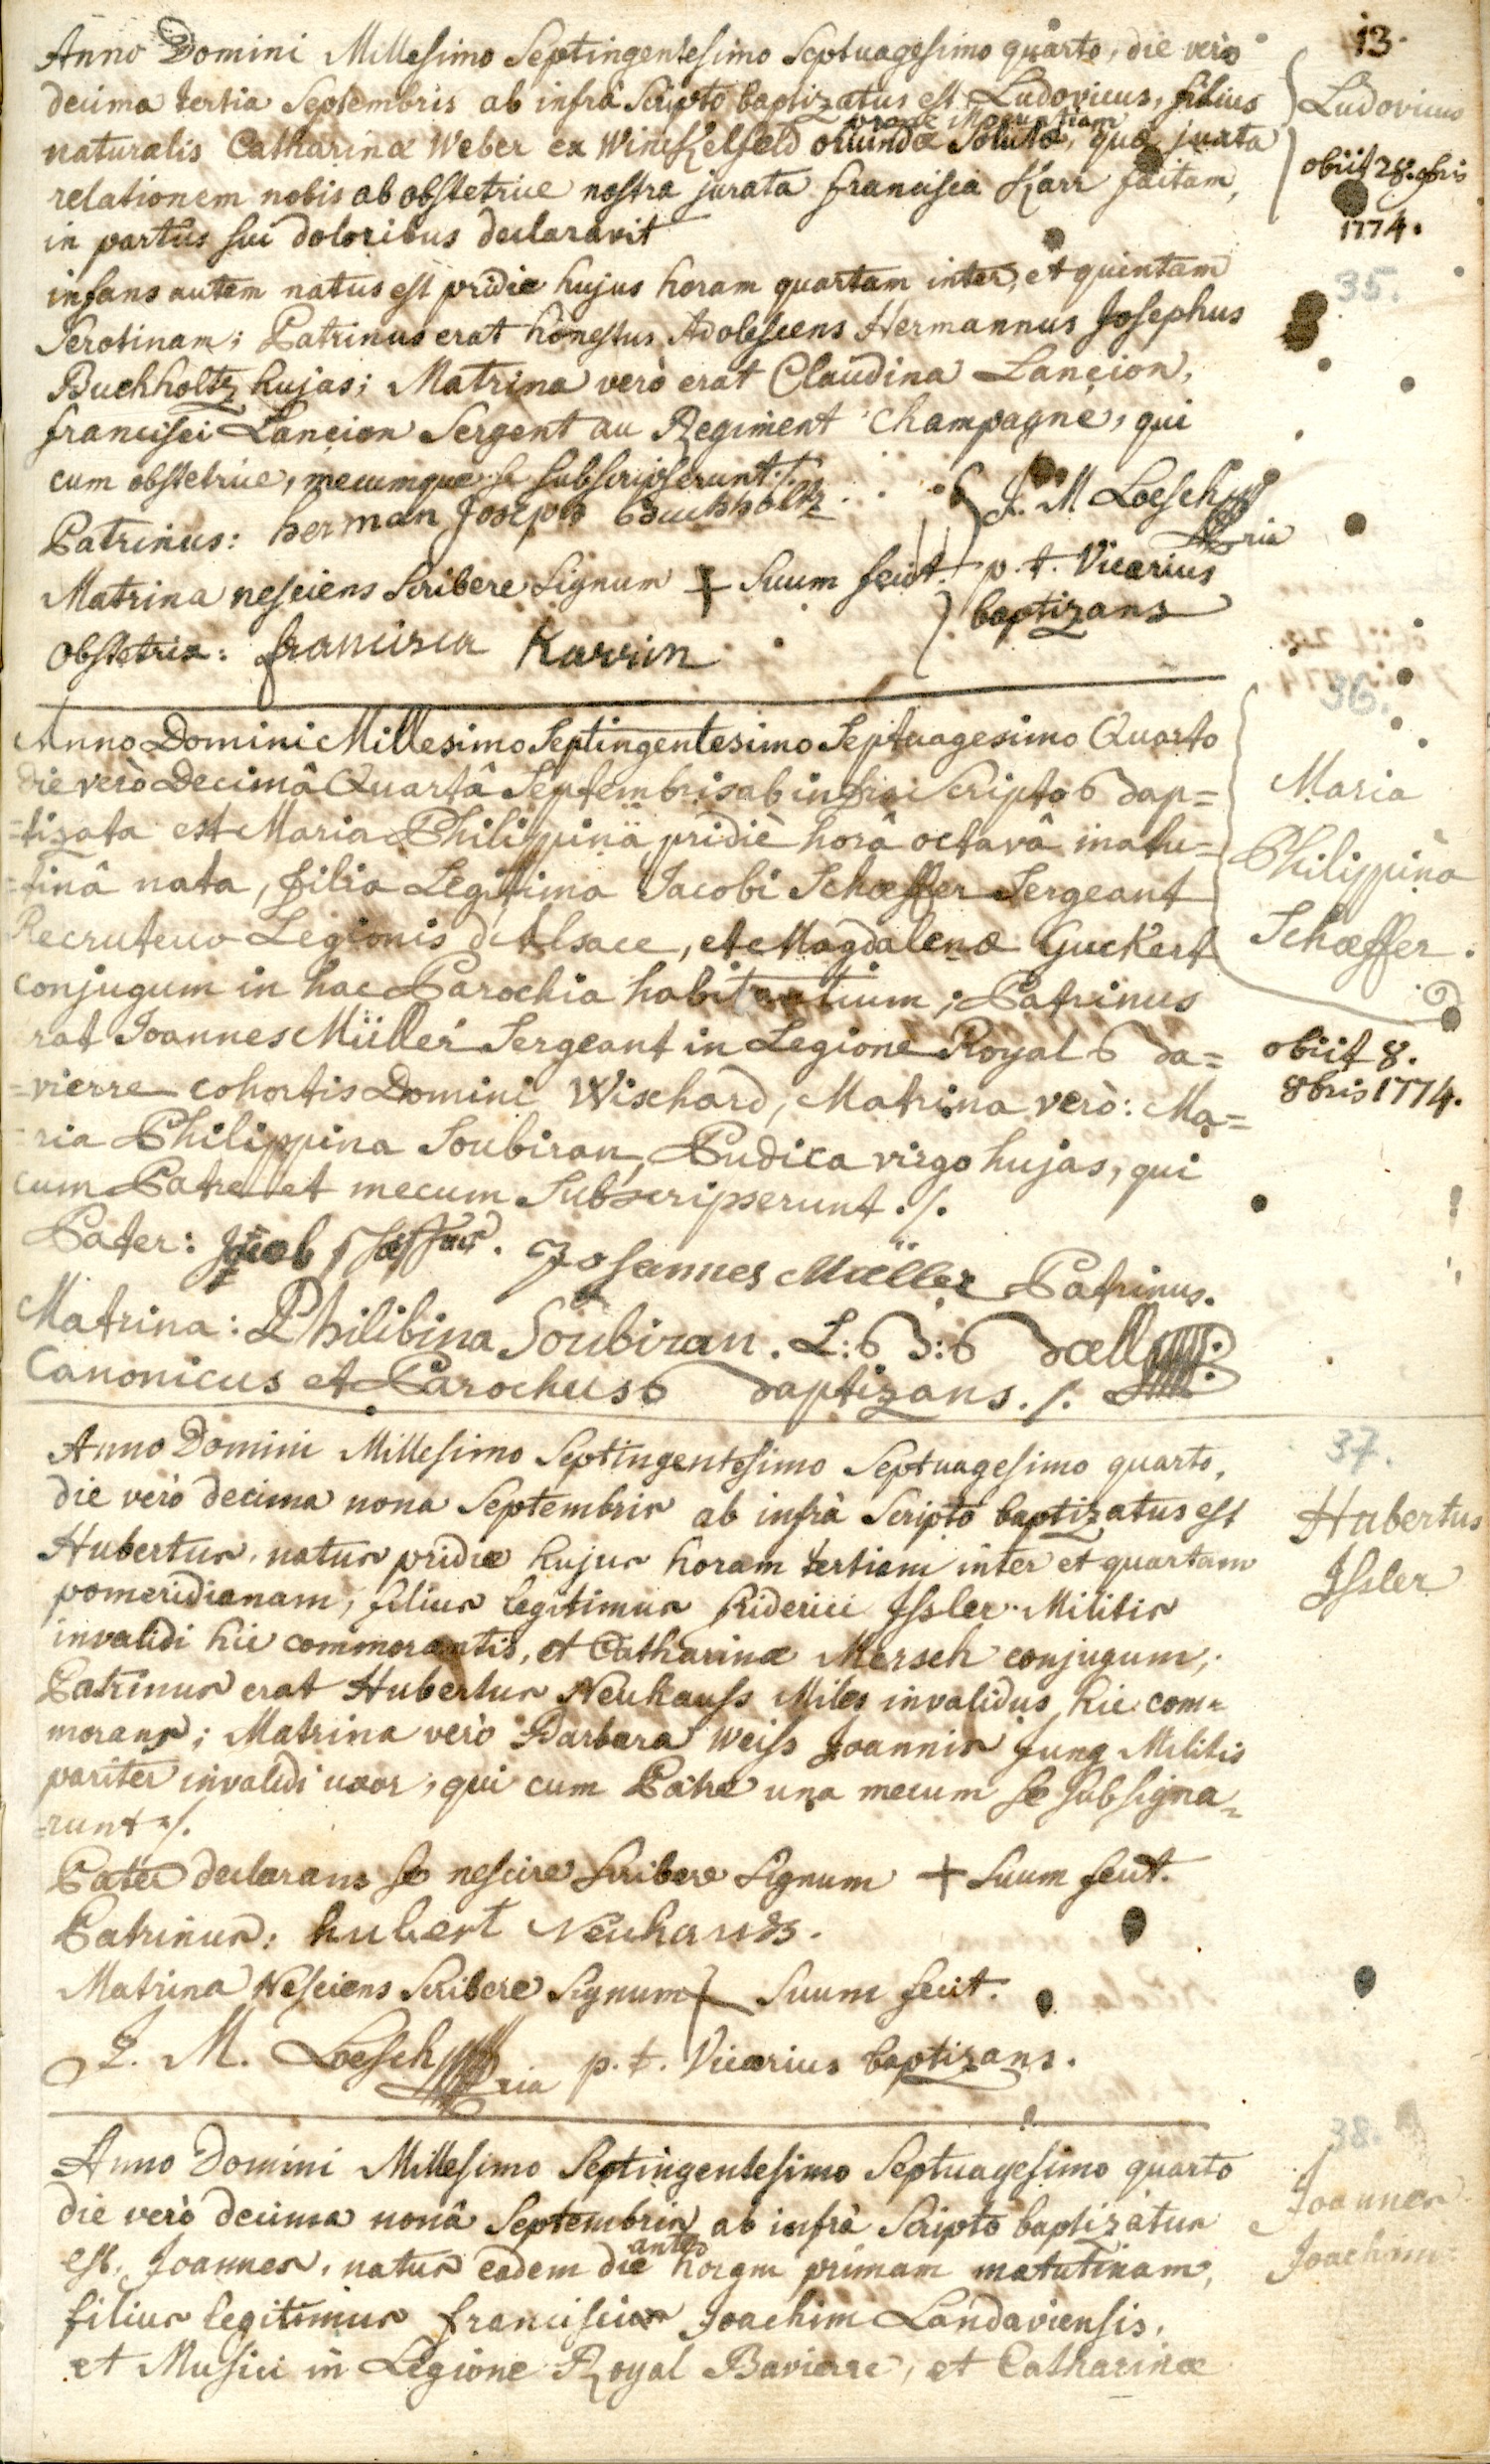 13.
Anno Domini Millesimo Septingentesimo Septuagesimo quarto, die verò
decima tertia Septembris ab infrà Scripto baptizatus est Ludovicus, filius
prope Moguntiam
naturalis Catharinæ Weber ex Winckelfeld oriundæ Solutæ, quæ juxta
relationem nobis ab obstetrice nostra jurata francisca Karr factam,
in partûs sui doloribus declaravit
infans autem natus est pridie hujus horam quartam inter, et quintam
Serotinam; Patrinus erat honestus Adolescens Hermannus Josephus
Buchholtz hujas; Matrina verò erat Claudina Lançion,
francisci Lançion Sergent au Regiment Champagne, qui
cum obstetrice, mecumque se subscripserunt ./.
Patrinus: herman Joseph Buchholtz
Matrina nesciens Scribere Signum + Suum fecit.
Obstetrix: francisca Karrin
J. M Loesch
p. t. Vicarius
baptizans
Ludovicus
obiit 28. 9bris
1774.
35.
Anno Domini Millesimo Septingentesimo Septuagesimo Quarto
die verò Decimâ Quartâ Septembris ab infra Scripto Bap=
=tizata est Maria Philippina pridiè horâ octavâ matu=
=tinâ nata, filia Legitima Jacobi Schæffer Sergeant
Recruteur Legionis d'Alsace, et Magdalenæ Guckert
conjugum in hac Parochia habitantium; Patrinus
erat Joannes Müller Sergeant in Legione Royal Ba=
=vierre cohortis Domini Wischard, Matrina verò: Ma=
=ria Philippina Soubiran, Pudica virgo hujas, qui
cum Patre et mecum Subscripserunt ./.
Pater: Jacob Schæffer. Johannes Mæller Patrinus.
Matrina: Philibina Soubiran. L: B: Bœll
Canonicus et Parochus Baptizans ./.
36.
Maria
Philippina
Schæffer.
obiit 8.
8bris 1774.
Anno Domini Millesimo Septingentesimo Septuagesimo quarto,
die verò decima nona Septembris ab infrà Scripto baptizatus est
Hubertus, natus pridie hujus horam tertiam inter et quartam
pomeridianam, filius legitimus friderici Issler Militis
invalidi hic commorantis, et Catharinæ Mersch conjugum;
Patrinus erat Hubertus Neuhauss Miles invalidus hic com=
morans; Matrina verò Barbara Weiss Joannis Jung Militis
pariter invalidi uxor, qui cum Patre una mecum se subsigna=
=runt ./.
Pater declarans se nescire Scribere Signum + Suum fecit.
Patrinus: hubert Neuhauss.
Matrina Nesciens Scribere Signum Suum fecit.
J. M. Loesch p. t. Vicarius baptizans.
37.
Hubertus
Issler
Anno Domini Millesimo Septingentesimo Septuagesimo quarto
die verò decima nonâ Septembris ab infrà Scripto baptizatus
antè
est, Joannes, natus eadem die horam primam matutinam,
filius legitimus francisci Joachim Landaviensis,
et Musici in Legione Royal Bavierre, et Catharinæ
38.
Joannes
Joachim